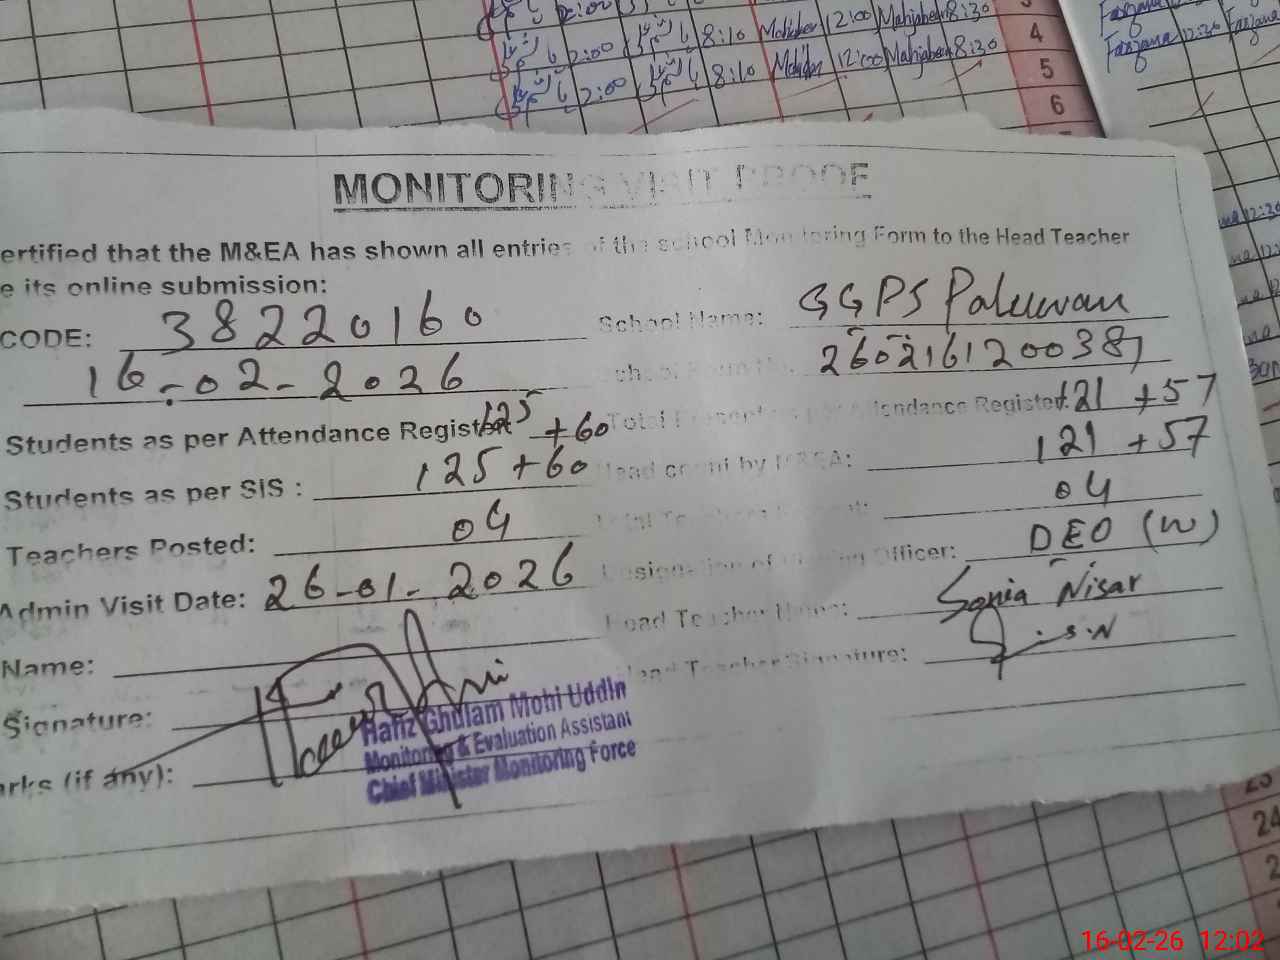 2:00 8:10 Mohiden 12:00 Mahjabeen 8:30
4
2:00 8:10 12:00 Mahjabeen 8:30
5
2:00 8:10
6
Farzana 12:30 Farzana
MONITORING VISIT PROOF
ertified that the M&EA has shown all entries of the school Monitoring Form to the Head Teacher
e its online submission:
CODE: 38220160 School Name: GGPS Paluwan
16-02-2026 260216120038
Students as per Attendance Register 125 +60 Total Present as per Attendance Register: 121 +57
Students as per SIS : 125+60 Head count by M&EA: 121 +57
Teachers Posted: 04 Total Teachers Present: 04
Admin Visit Date: 26-01-2026 Designation of Visiting Officer: DEO (W)
Name: Head Teacher Name: Sonia Nisar
Signature: Head Teacher Signature: S.N
arks (if any):
Hafiz Ghulam Mohi Uddin
Monitoring & Evaluation Assistant
Chief Minister Monitoring Force
24
16-02-26 12:02